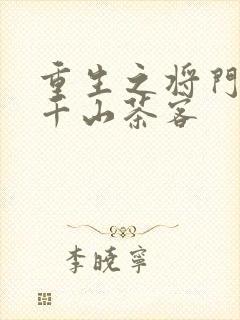 重生之将門
千山茶客
李晓寧